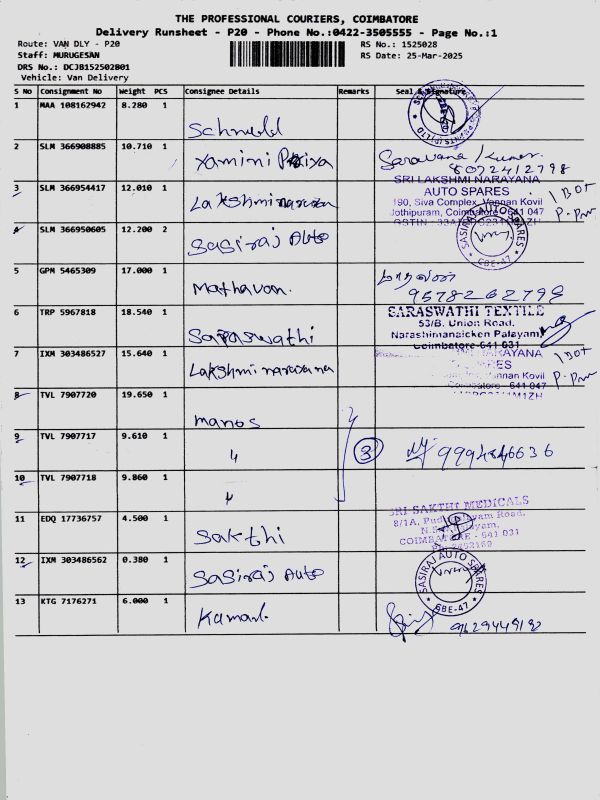 THE PROFESSIONAL COURIERS, COIMBATORE
Delivery Runsheet - P20 - Phone No.:0422-3505555 - Page No.:1
Route: VAN DLY - P20 RS No.: 1525028
Staff: MURUGESAN RS Date: 25-Mar-2025
DRS No.: DCJB152502801
Vehicle: Van Delivery
S No Consignment No Weight PCS Consignee Details Remarks Seal & Signature
1 MAA 108162942 8.280 1
2 SLM 366908885 10.710 1 Yamini Priya Saravana Kumar
8072412798
3 SLM 366954417 12.010 1 Lakshmi narayana
SRI LAKSHMI NARAYANA
AUTO SPARES
190, Siva Complex, Vannan Kovil
Jothipuram, Coimbatore-641 047
1 Box
4 SLM 366950605 12.200 2 Sasiraj Auto
SASIRAJ AUTO SPARES
CBE-47
5 GPM 5465309 17.000 1 Mathavan.
9578262799
6 TRP 5967818 18.540 1 Saraswathi
SARASWATHI TEXTILE
53/B. Union Road,
Narashimanaicken Palayam,
Coimbatore-641 031
7 IXM 303486527 15.640 1 Lakshmi narayana
NARAYANA
Vannan Kovil
641 047
1 Box
8 TVL 7907720 19.650 1 manos
9 TVL 7907717 9.610 1 " 3 9994846636
10 TVL 7907718 9.860 1 "
11 EDQ 17736757 4.500 1 Sakthi
SRI SAKTHI MEDICALS
COIMBATORE - 641 031
12 IXM 303486562 0.380 1 Sasiraj Auto
SASIRAJ AUTO SPARES
CBE-47
13 KTG 7176271 6.000 1 Kamal 9629449192